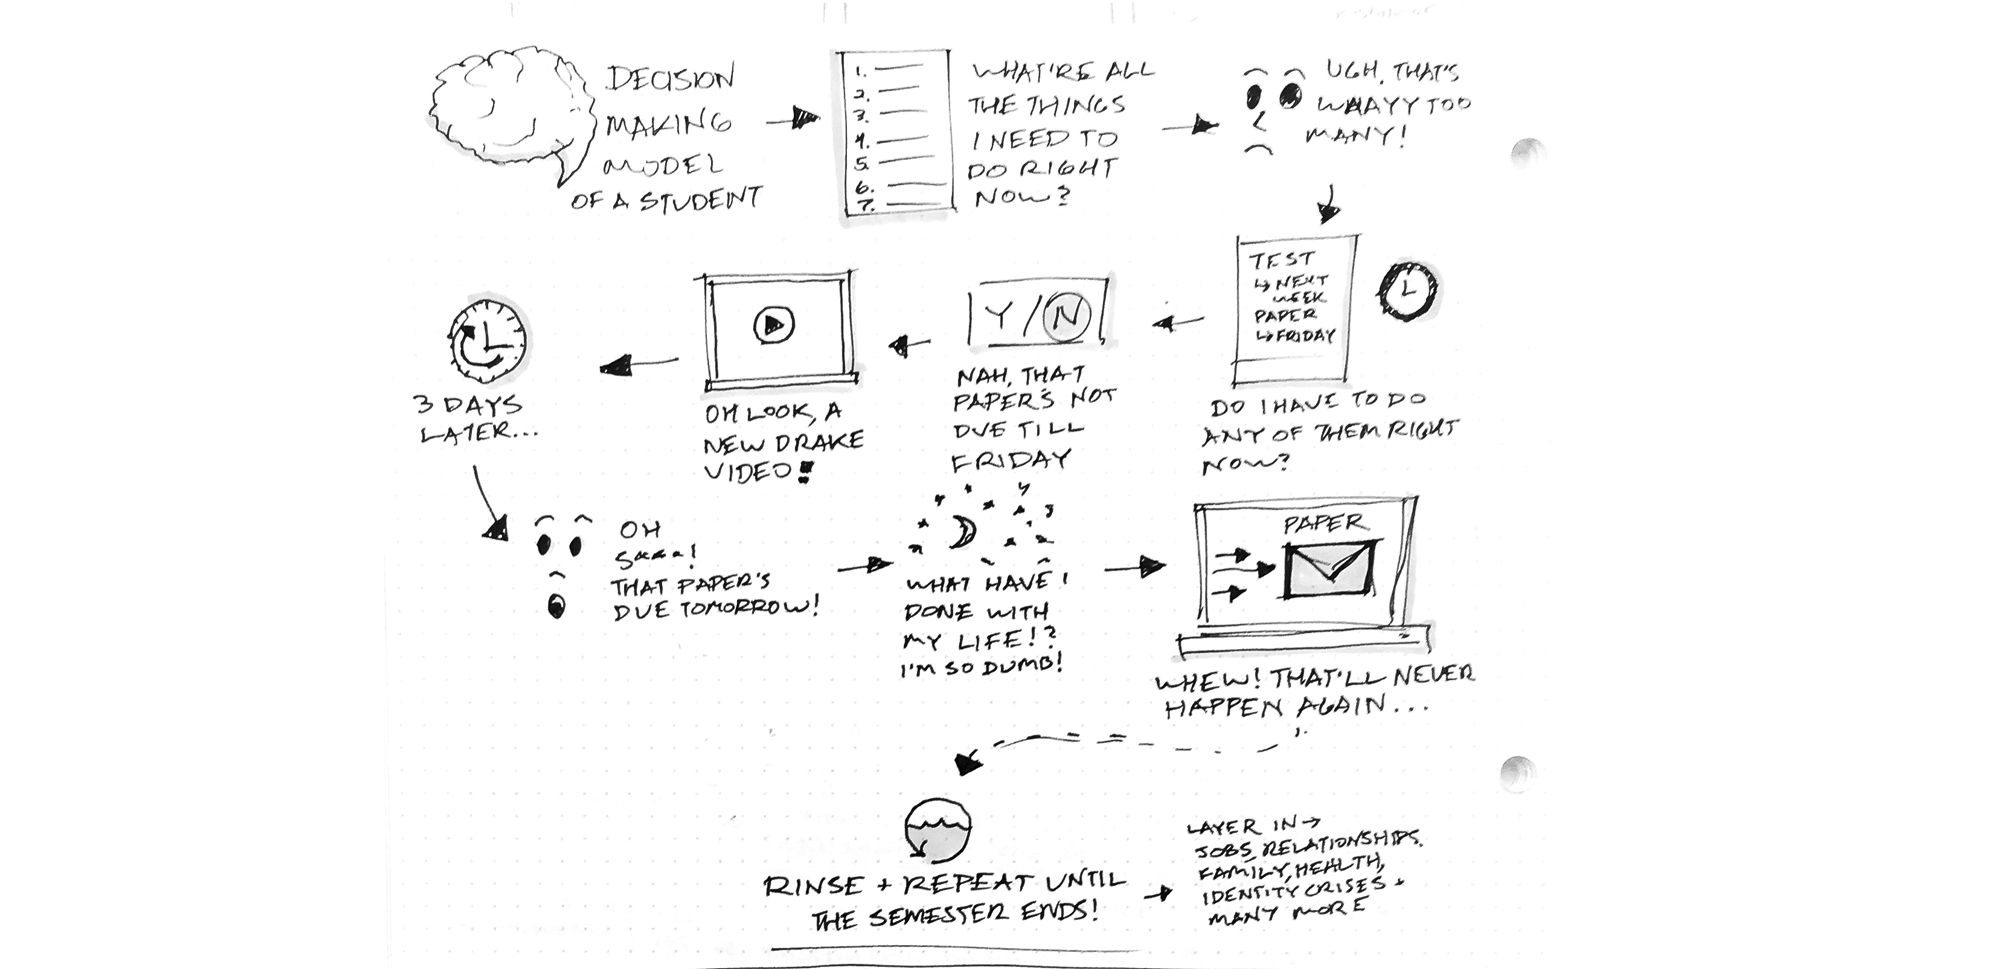 DECISION
MAKING
MODEL
OF A STUDENT
1.
2.
3.
4.
5.
6.
7.
WHAT'RE ALL
THE THINGS
I NEED TO
DO RIGHT
NOW?
UGH, THAT'S
WAAYY TOO
MANY!
TEST
↳ NEXT
WEEK
PAPER
↳ FRIDAY
DO I HAVE TO DO
ANY OF THEM RIGHT
NOW?
Y/N
NAH, THAT
PAPER'S NOT
DUE TILL
FRIDAY
OH LOOK, A
NEW DRAKE
VIDEO!
3 DAYS
LATER...
OH
S
THAT PAPER'S
DUE TOMORROW!
WHAT HAVE I
DONE WITH
MY LIFE!?
I'M SO DUMB!
PAPER
WHEW! THAT'LL NEVER
HAPPEN AGAIN...
RINSE + REPEAT UNTIL
THE SEMESTER ENDS!
LAYER IN →
JOBS, RELATIONSHIPS,
FAMILY, HEALTH,
IDENTITY CRISES +
MANY MORE